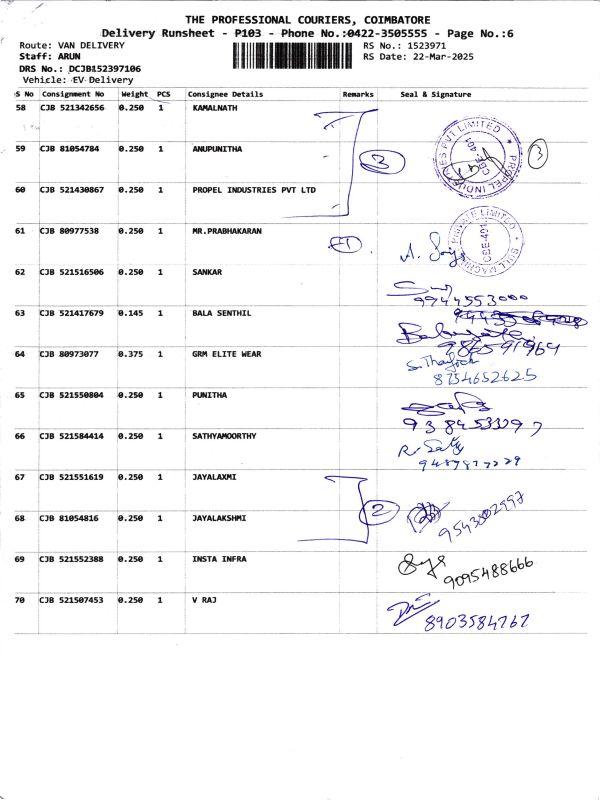 THE PROFESSIONAL COURIERS, COIMBATORE
Delivery Runsheet - P103 - Phone No.:0422-3505555 - Page No.:6
Route: VAN DELIVERY RS No.: 1523971
Staff: ARUN RS Date: 22-Mar-2025
DRS No.: DCJB152397106
Vehicle: EV Delivery
S No Consignment No Weight PCS Consignee Details Remarks Seal & Signature
58 CJB 521342656 0.250 1 KAMALNATH
59 CJB 81054784 0.250 1 ANUPUNITHA 3 3
PROPEL INDUSTRIES PVT LIMITED CBE-401
60 CJB 521430867 0.250 1 PROPEL INDUSTRIES PVT LTD
61 CJB 80977538 0.250 1 MR.PRABHAKARAN
PRIVATE LIMITED CBE-401
62 CJB 521516506 0.250 1 SANKAR
9944553000
63 CJB 521417679 0.145 1 BALA SENTHIL
64 CJB 80973077 0.375 1 GRM ELITE WEAR
8754652625
65 CJB 521550804 0.250 1 PUNITHA
66 CJB 521584414 0.250 1 SATHYAMOORTHY
67 CJB 521551619 0.250 1 JAYALAXMI
2
68 CJB 81054816 0.250 1 JAYALAKSHMI
69 CJB 521552388 0.250 1 INSTA INFRA
9095488666
70 CJB 521507453 0.250 1 V RAJ
8903584767